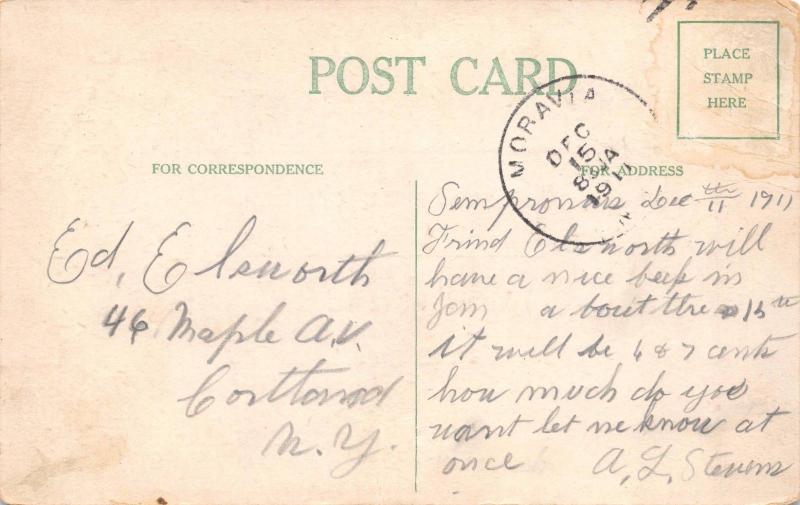 POST CARD
PLACE
STAMP
HERE
MORAVIA
DEC
1911
FOR CORRESPONDENCE
FOR ADDRESS
Ed, Elsworth
46 Maple Av.
Cortland
N.Y.
Sempronius Dec 11th 1911
Frind Elsworth will
have a nice beef in
Jan a bout the 15th
it will be 6 & 7 cents
how much do you
want let me know at
once A, L, Stevens